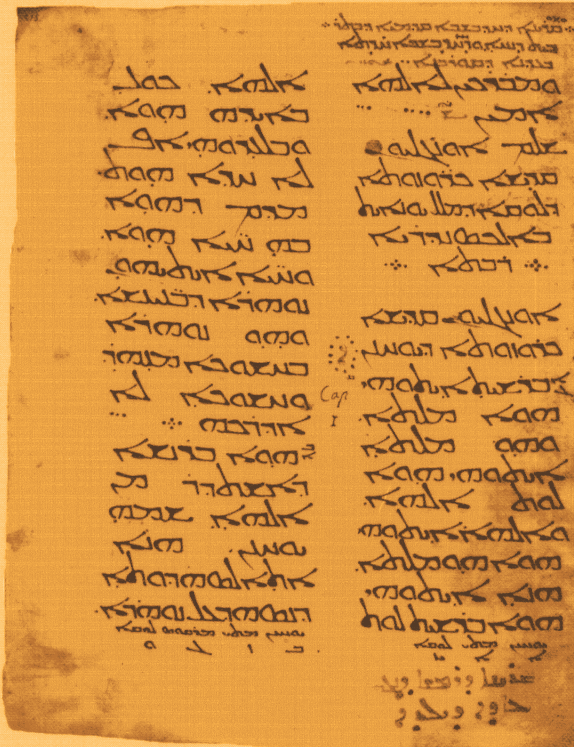 ܘܡܒܪܟܝܢ ܠܐܠܗܐ
ܐܡܝܢ
ܫܠܡ ܐܘܢܓܠܝܘܢ
ܩܕܝܫܐ ܟܪܘܙܘܬܐ
ܕܠܘܩܐ ܕܡܠܠ ܝܘܢܐܝܬ
ܒܐܠܟܣܢܕܪܝܐ
܀ ܪܒܬܐ ܀
ܐܘܢܓܠܝܘܢ ܩܕܝܫܐ
ܟܪܘܙܘܬܐ ܕܝܘܚܢܢ
ܒܪܫܝܬ ܐܝܬܘܗܝ
ܗܘܐ ܡܠܬܐ
ܘܗܘ ܡܠܬܐ
ܐܝܬܘܗܝ ܗܘܐ
ܠܘܬ ܐܠܗܐ
ܘܐܠܗܐ ܐܝܬܘܗܝ
ܗܘܐ ܗܘ ܡܠܬܐ
ܗܢܐ ܐܝܬܘܗܝ
ܗܘܐ ܒܪܫܝܬ ܠܘܬ
Cap
I
ܐܠܗܐ܂ ܟܠ
ܒܐܝܕܗ ܗܘܐ܂
ܘܒܠܥܕܘܗܝ ܐܦ
ܠܐ ܚܕܐ ܗܘܬ
ܡܕܡ ܕܗܘܐ
ܒܗ ܚܝ̈ܐ ܗܘܐ܂
ܘܚܝ̈ܐ ܐܝܬܝܗܘܢ
ܢܘܗܪܐ ܕܒܢܝܢܫܐ܂
ܘܗܘ ܢܘܗܪܐ
ܒܚܫܘܟܐ ܡܢܗܪ
ܘܚܫܘܟܐ ܠܐ
ܐܕܪܟܗ ܀
ܗܘܐ ܒܪܢܫܐ
ܕܐܫܬܕܪ ܡܢ
ܐܠܗܐ ܫܡܗ
ܝܘܚܢܢ܂ ܗܢܐ
ܐܬܐ ܠܣܗܕܘܬܐ
ܕܢܣܗܕ ܥܠ ܢܘܗܪܐ܂